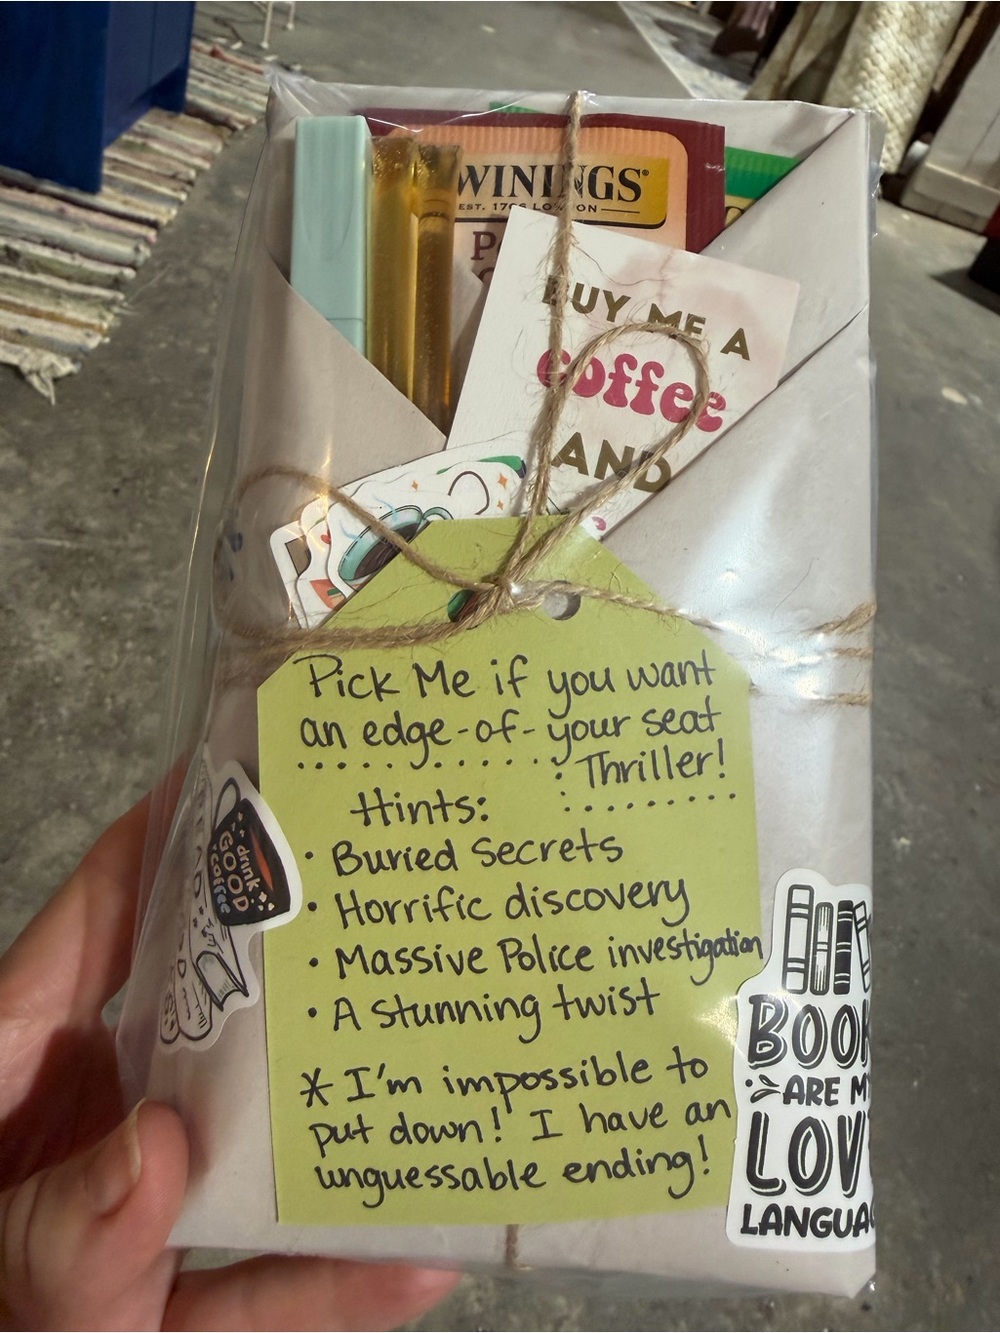 WININGS®
EST. 1706 LONDON
BUY ME A
coffee
AND
Pick Me if you want
an edge-of-your seat
Thriller!
Hints:
• Buried Secrets
• Horrific discovery
• Massive Police investigation
• A stunning twist
* I'm impossible to
put down! I have an
unguessable ending!
drink
GOOD
coffee
BOOK
ARE MY
LOV
LANGUAG